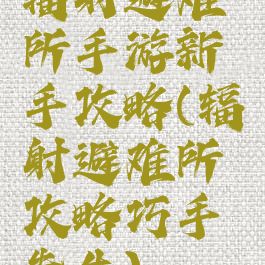 辐射避难
所手游新
手攻略(辐
射避难所
攻略巧手